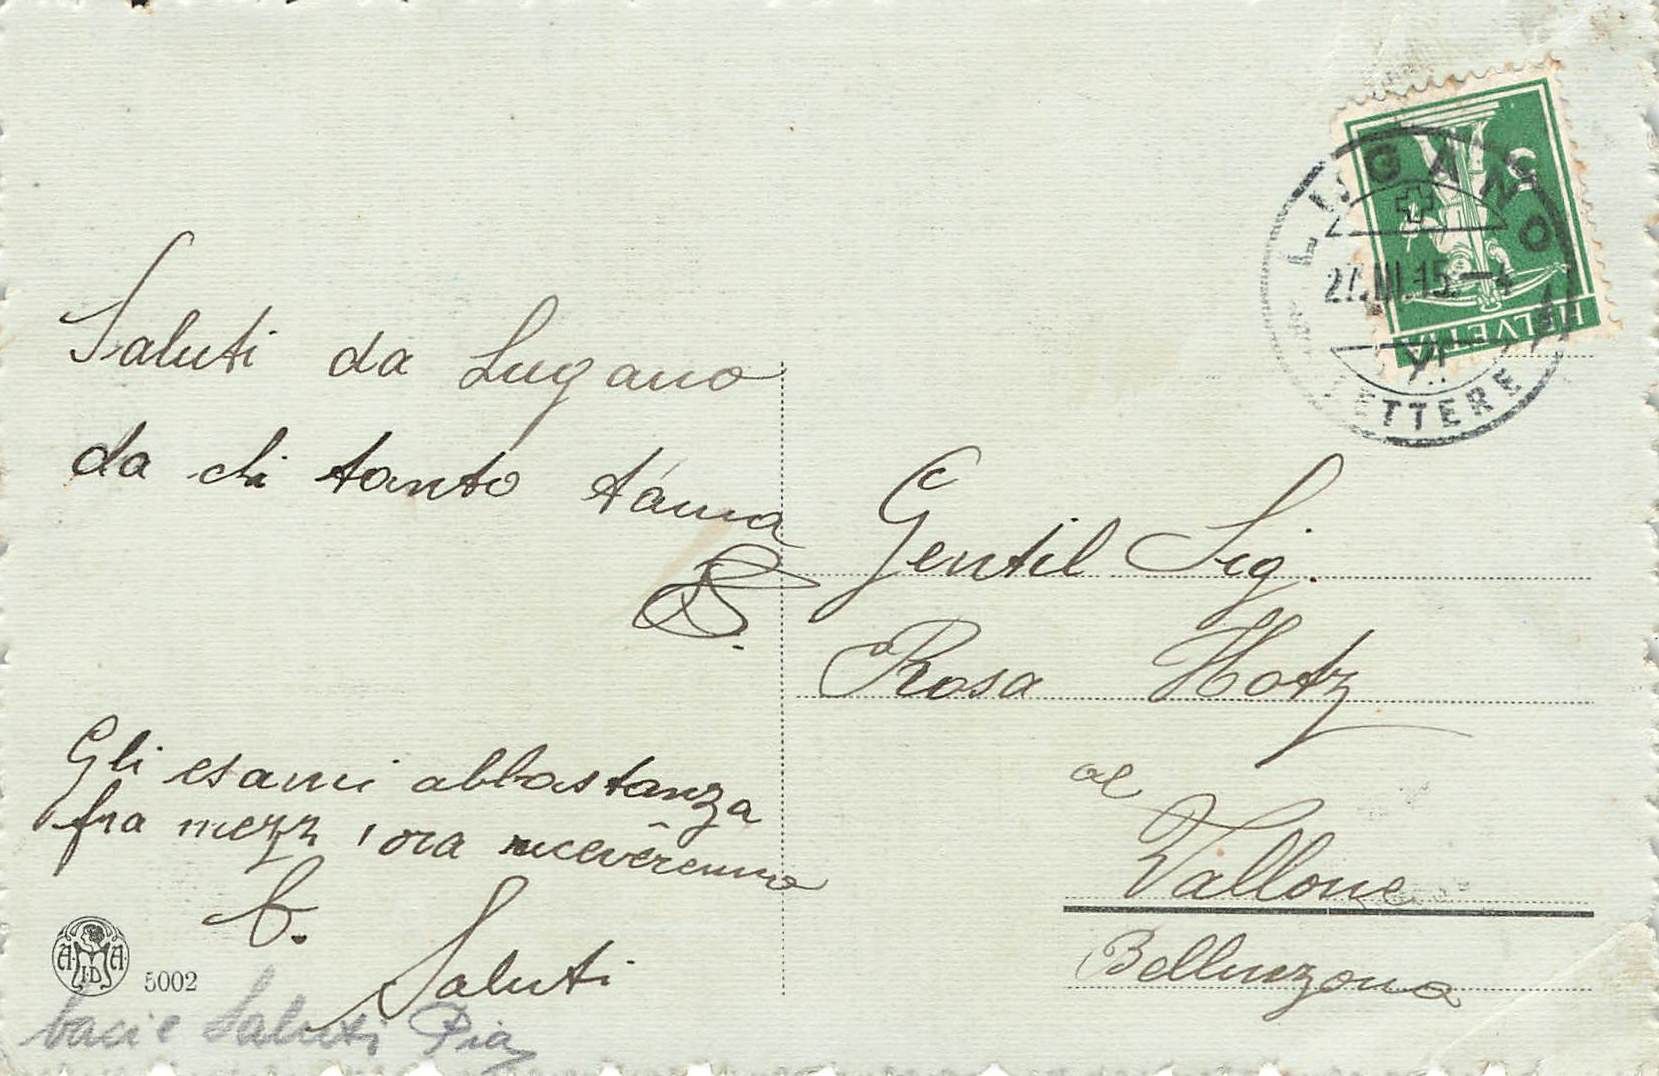 Saluti da Lugano
da chi tanto t'ama
Gli esami abbastanza
fra mezz'ora riceveremo
Saluti
baci e Saluti Pia
5002
HELVETIA
LUGANO
27.III.15.—4
VI
LETTERE
Gentil Sig.
Rosa Hotz
al
Vallone
Bellinzona